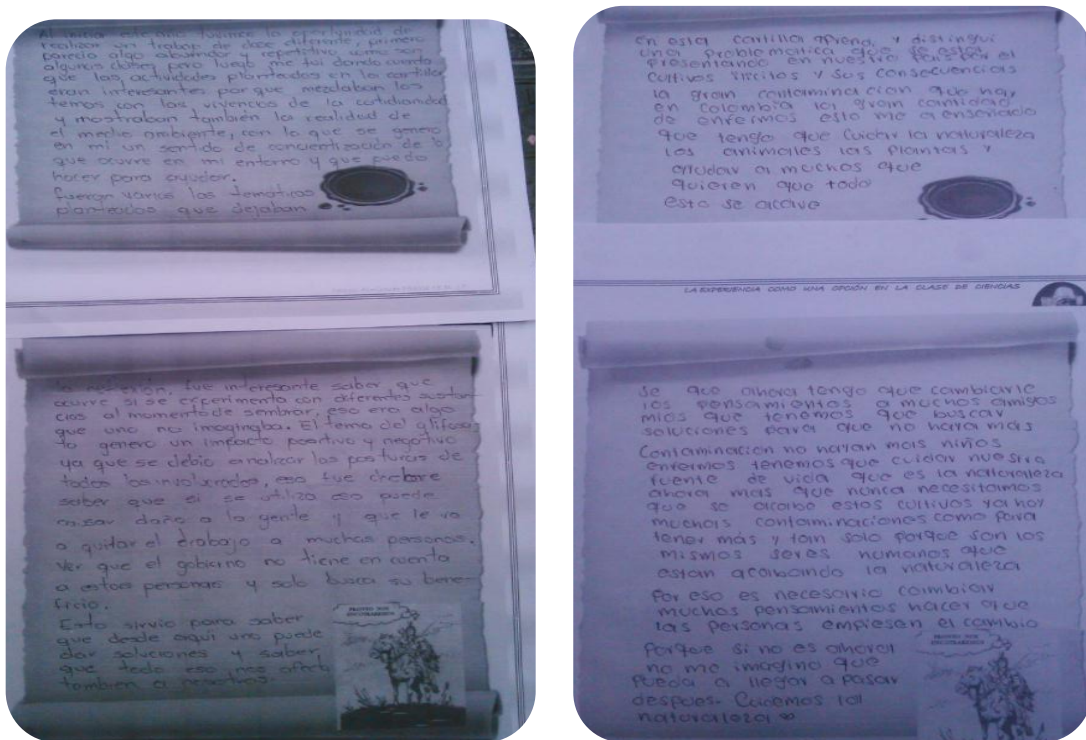 Al iniciar este año tuvimos la oportunidad de
realizar un trabajo de clase diferente, primero
parecio algo aburridor y repetitivo como son
algunas clases pero luego me fui dando cuenta
que las actividades planteadas en la cartilla
eran interesantes porque mezclaban los
temas con las vivencias de la cotidianidad
y mostraban también la realidad de
el medio ambiente, con lo que se genero
en mi un sentido de concientización de lo
que ocurre en mi entorno y que puedo
hacer para ayudar.
fueron varios las tematicas
planteadas que dejaban
la reflexión, fue interesante saber que
ocurre si se experimenta con diferentes sustan-
cias al momento de sembrar, eso era algo
que uno no imaginaba. El tema del glifosa-
to genero un impacto positivo y negativo
ya que se debio analizar las posturas de
todos los involucrados, eso fue chebre
saber que si se utiliza eso puede
causar daño a la gente y que le va
a quitar el trabajo a muchas personas.
Ver que el gobierno no tiene en cuenta
a estas personas y solo busca su bene-
ficio.
Esto sirvio para saber
que desde aqui uno puede
dar soluciones y saber
que todo eso nos afecta
tambien a nosotros.
PRONTO NOS
ENCONTRAREMOS
En esta cartilla aprendi y distingui
una problematica que se esta
presentando en nuestro pais por el
cultivos iliscitos y sus consecuencias
la gran contaminacion que hay
en colombia la gran cantidad
de enfermos esto me a enseñado
que tengo que cuidar la naturaleza
los animales las plantas y
ayudar a muchos que
quieren que todo
esto se acave
LA EXPERIENCIA COMO UNA OPCIÓN EN LA CLASE DE CIENCIAS
se que ahora tengo que cambiarle
los pensamientos a muchos amigos
mios que tenemos que buscar
soluciones para que no haya más
contaminación no hayan mas niños
enfermos tenemos que cuidar nuestra
fuente de vida que es la naturaleza
ahora mas que nunca necesitamos
que se acabe estos cultivos ya hay
muchas contaminaciones como para
tener más y tan solo porque son los
mismos seres humanos que
estan acabando la naturaleza
Por eso es necesario cambiar
muchos pensamientos hacer que
las personas empiesen el cambio
Porque si no es ahora
no me imagino que
pueda a llegar a pasar
despues. Cuidemos la
naturaleza
PRONTO NOS
ENCONTRAREMOS